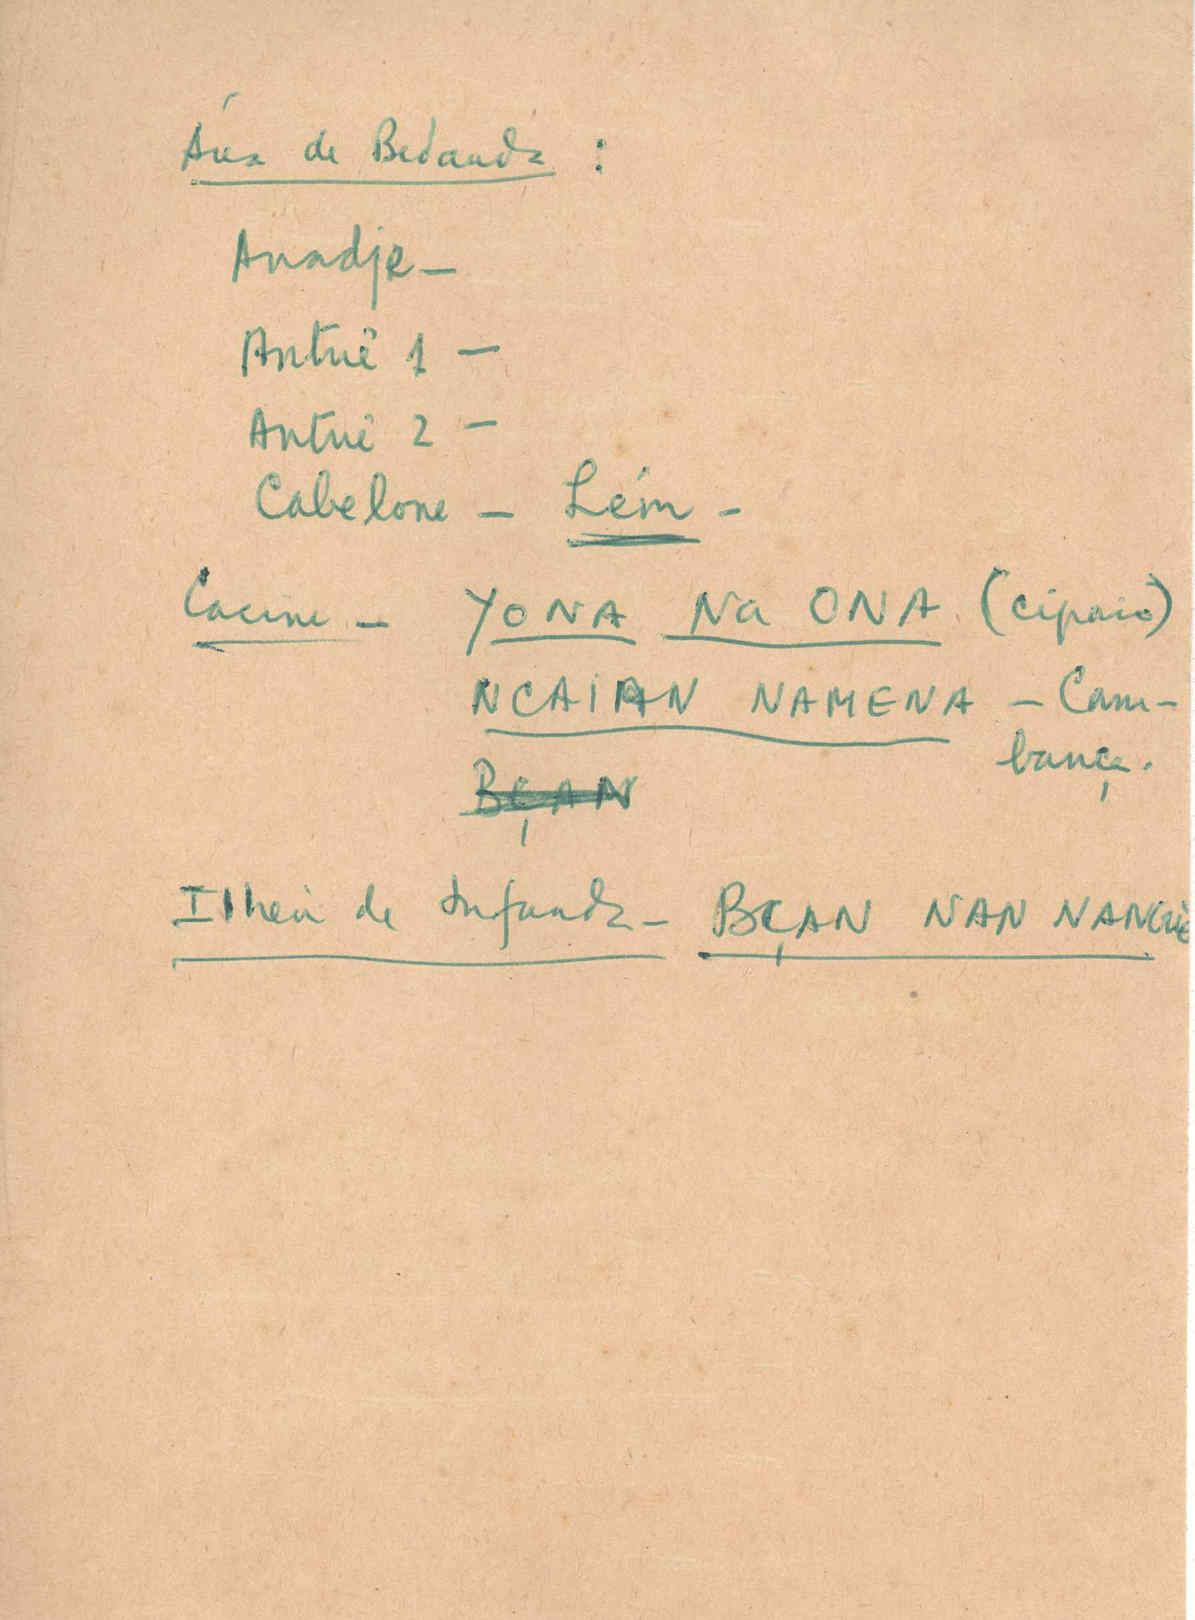 Área de Bedanda :
Anadje –
Antuê 1 –
Antuê 2 –
Cabelone – Lém –
Cacine – YONA Na ONA (cipaio)
NCAIAN NAMENA – Cam-
bança.
BÇAN
Ilheu de Infanda – BÇAN NAN